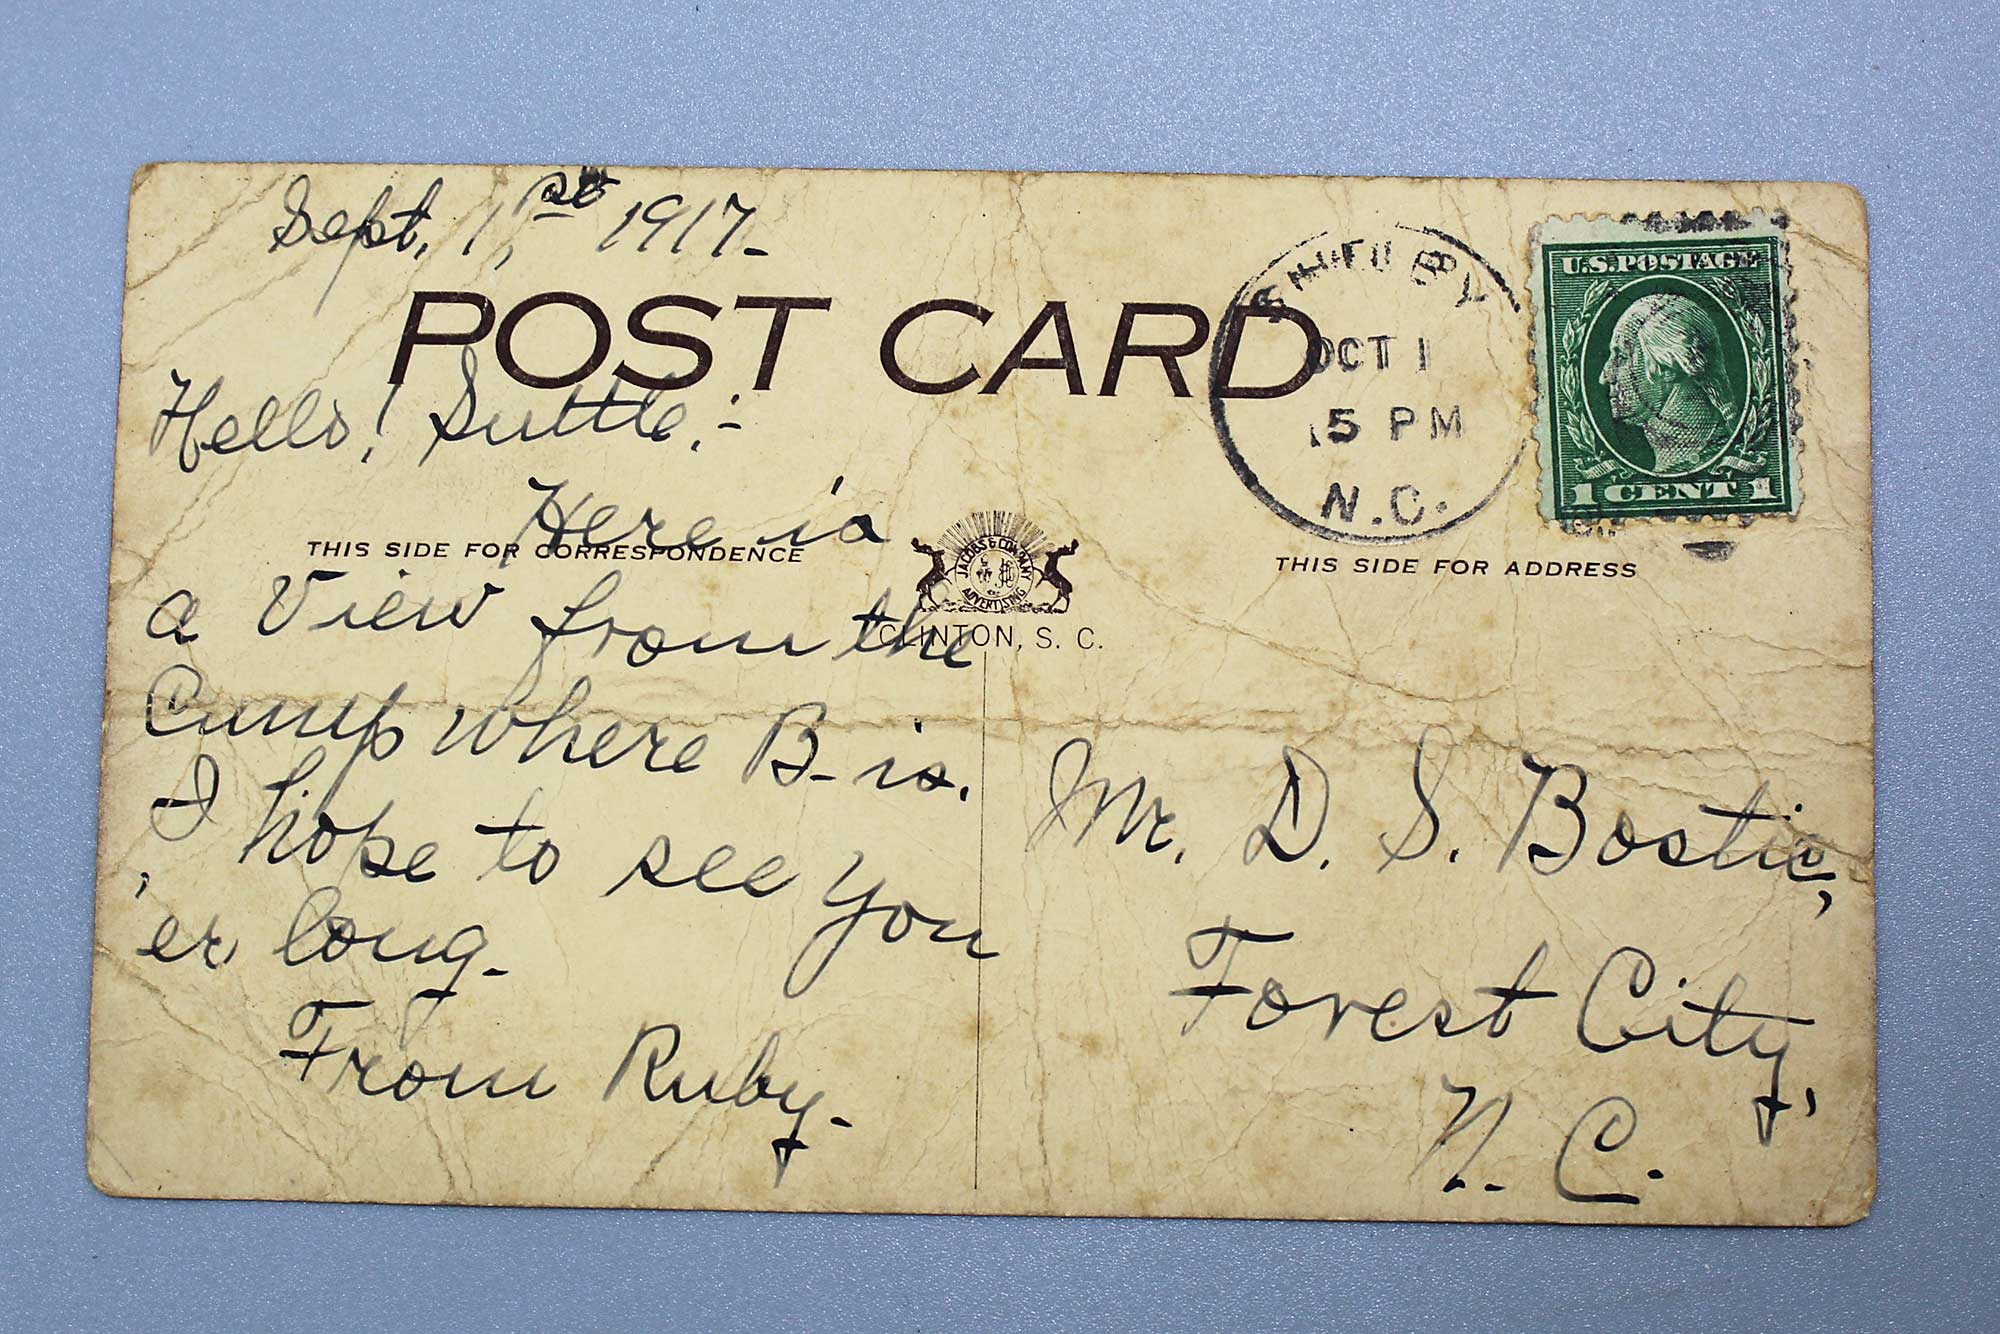 Sept. 1, st 1917-
POST CARD
OCT 1
5 PM
N.C.
U.S. POSTAGE
1 CENT 1
Hello! Suttle:-
Here is
THIS SIDE FOR CORRESPONDENCE
JACOBS & COMPANY
ADVERTISING
CLINTON, S. C.
THIS SIDE FOR ADDRESS
a View from the
Camp where B- is.
I hope to see you
'er long.
From Ruby-
Mr. D. S. Bostic,
Forest City,
N. C.